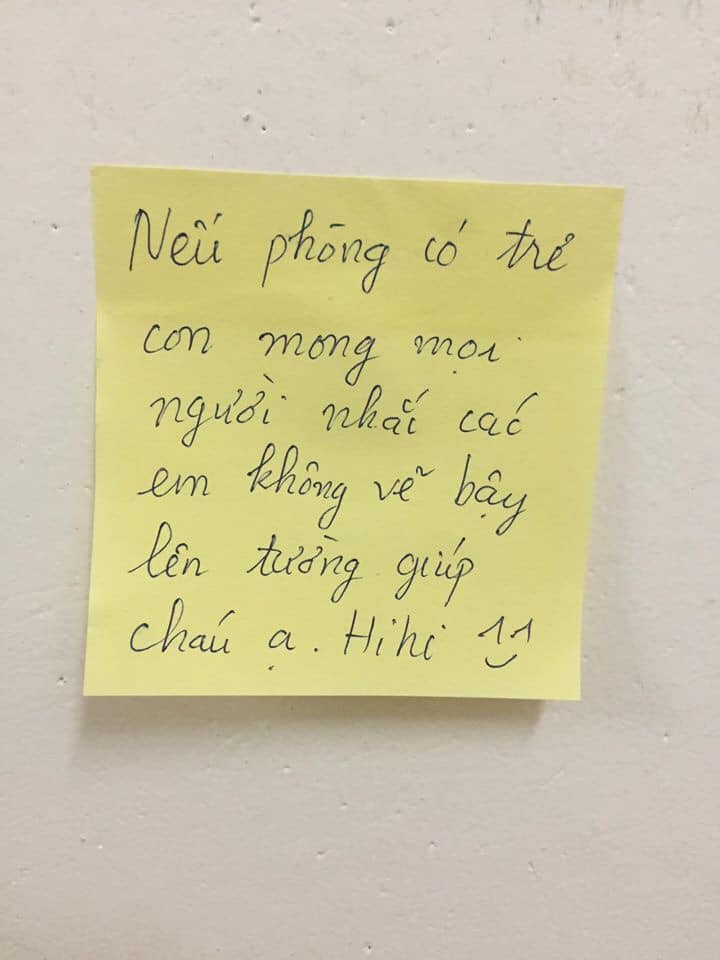 Nếu phòng có trẻ
con mong mọi
người nhắc các
em không vẽ bậy
lên tường giúp
cháu ạ. Hihi ^.^